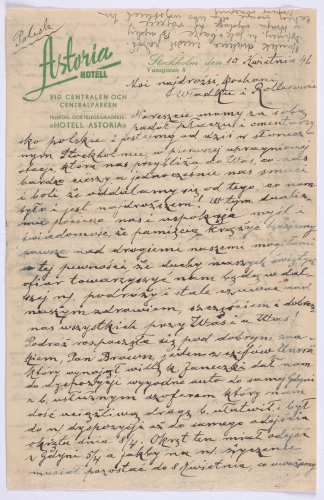 Polish
Astoria
HOTELL
VID CENTRALEN OCH
CENTRALPARKEN
TELEFON: OCH TELEGRAMADRESS:
»HOTELL ASTORIA»
Stockholm den 10 kwietnia 46
Vasagatan 8
Moi najdrożsi kochani
Władku i
Nareszcie mamy za sobą
padół płaczu i cmentarzy
sko polskie i jesteśmy od dziś w słonecz
nym Stockholmie w pierwszej upragnionej
stacji, która nas przybliża do Was, co nas
bardzo cieszy a jednocześnie nas smuci
i boli że oddalamy się od tego, co nam
było i jest najdroższem! W tym
nas i uspokaja myśl i
świadomość, że pamięcią krążyć będziemy
zawsze nad drogiemi naszemi mogiłami
w tej pewności że duchy naszych
ofiar towarzyszyć nam będą w dal
szej n/ podróży i stale czuwać nad
naszym zdrowiem, szczęściem i dobrem
nas wszystkich przy Was i u Was!
Podróż rozpoczęła się pod dobrym zna
kiem, Pan Brown jeden z szefów Unrra
który wynajął willę k/ Janeczki dał nam
do dyspozycji wygodne auto do samej Gdyni
z b. usłużnym szoferem który nam
dość uciążliwą drogę b. ułatwił i był
do n/ dyspozycji aż do samego odejścia
okrętu dnia 8/4. Okręt ten miał odejść
z Gdyni 5/4 a jakby na n/ życzenie
musiał pozostać do 8 kwietnia, co uważamy